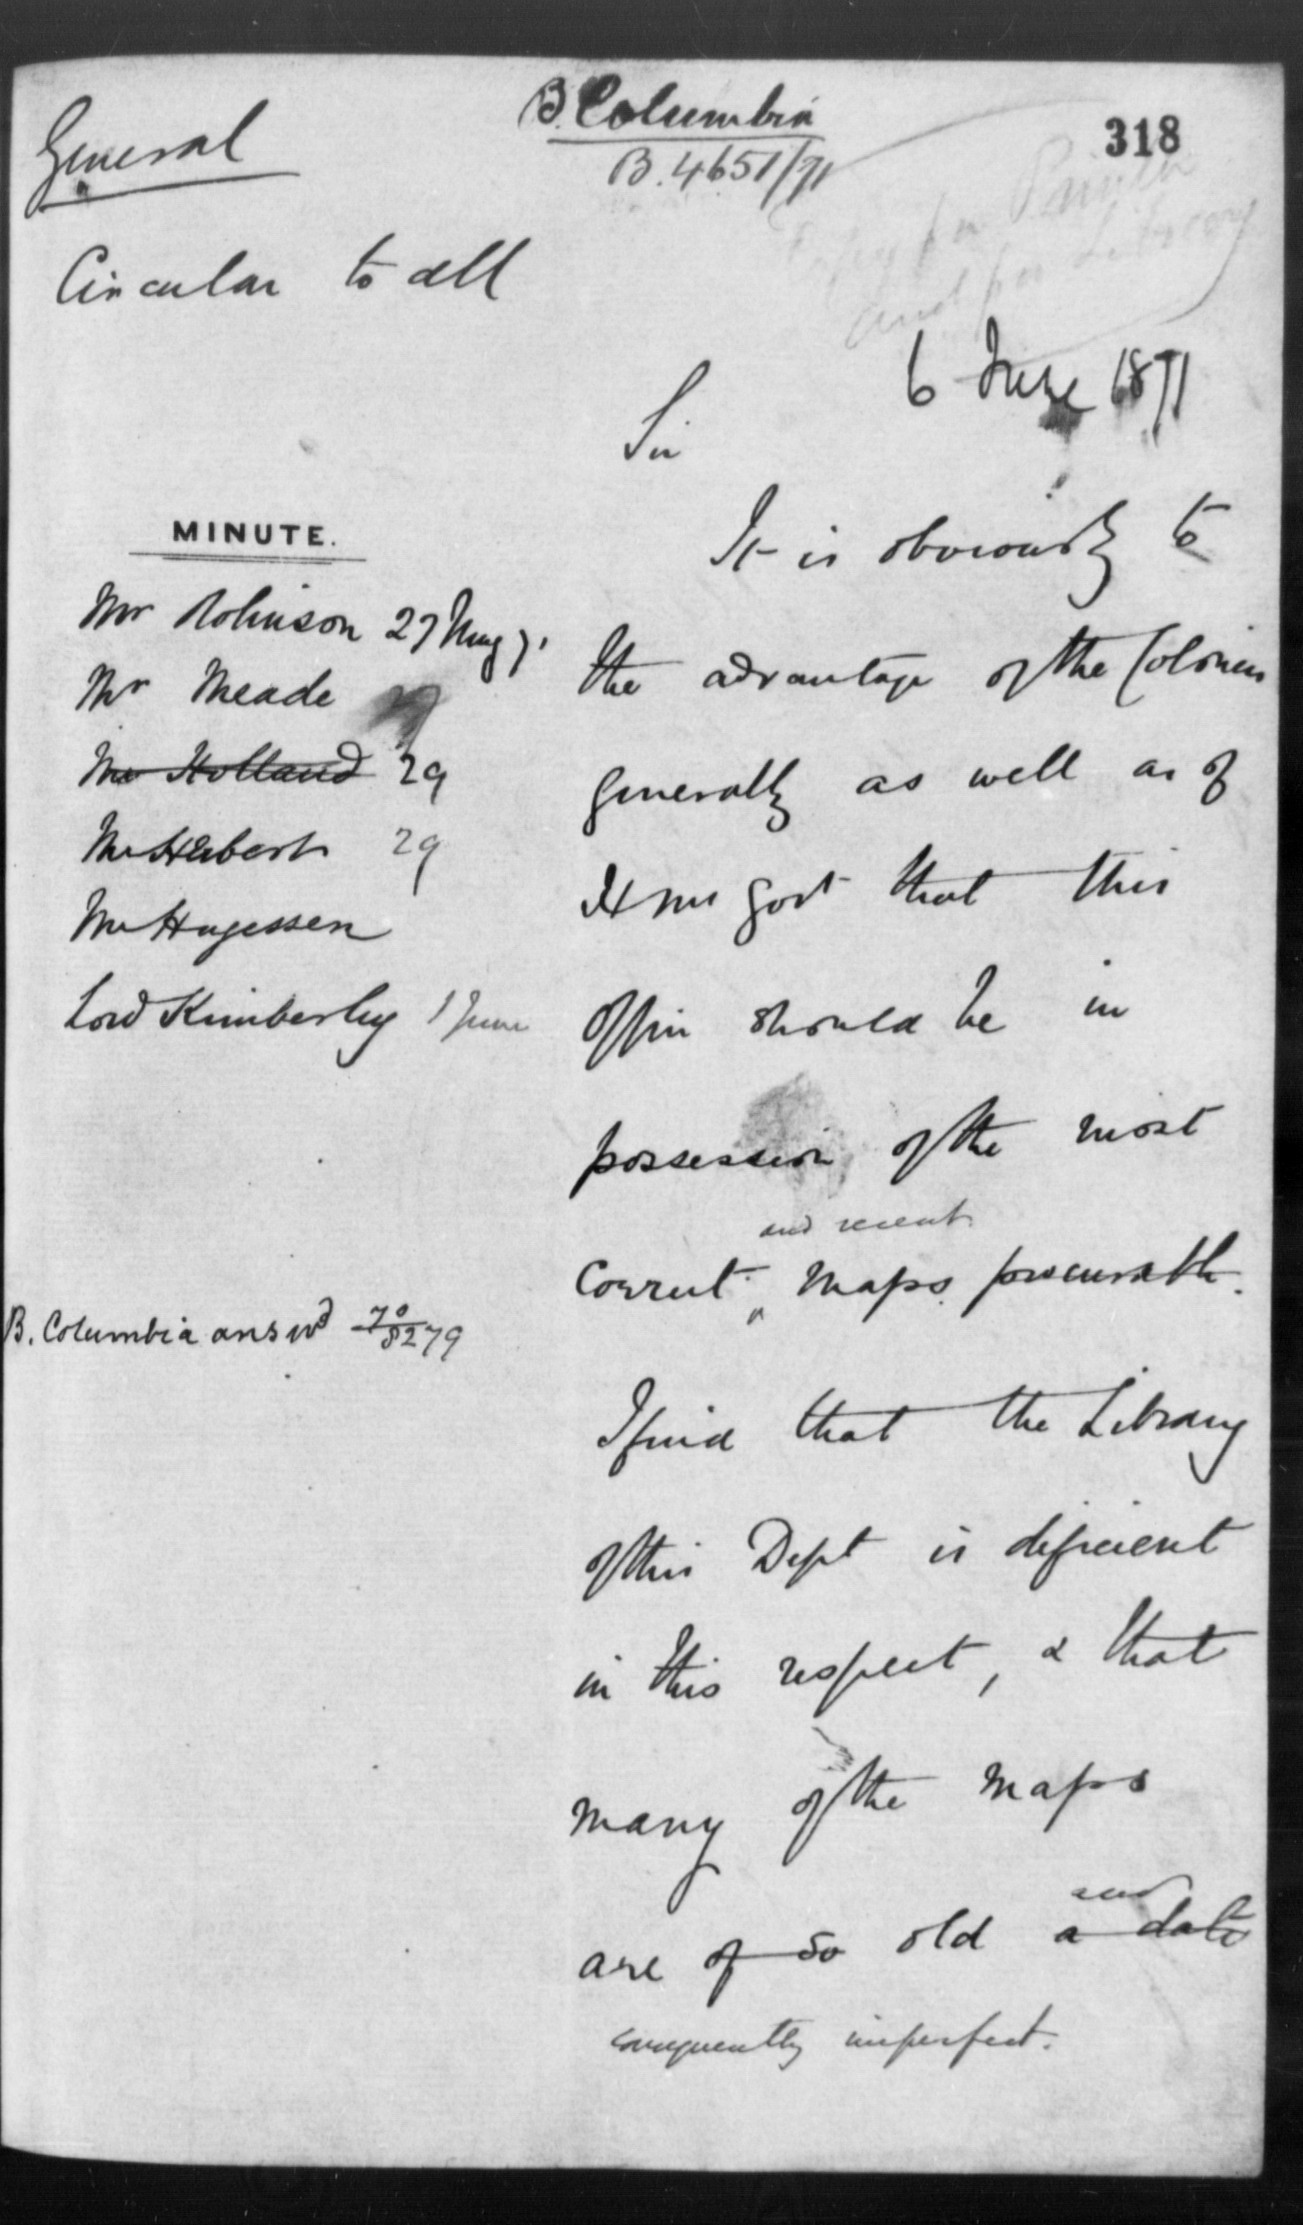 B. Columbia
318
General
B. 4651/71
Copy for Printer
and for Library
Circular to all
6 June 1871
Sir
MINUTE.
It is obviously to
Mr Robinson 27 May 71
the advantage of the Colonies
Mr Meade
Mr Holland 29
generally as well as of
Mr Herbert 29
H M Govt that this
Mr Hugessen
Lord Kimberley 1 June
Office should be in
possession of the most
and recent
correct maps procurable.
B. Columbia answd 8279
I find that the Library
of this Dept is deficient
in this respect, & that
many of the maps
and
are of so old a date
consequently imperfect.